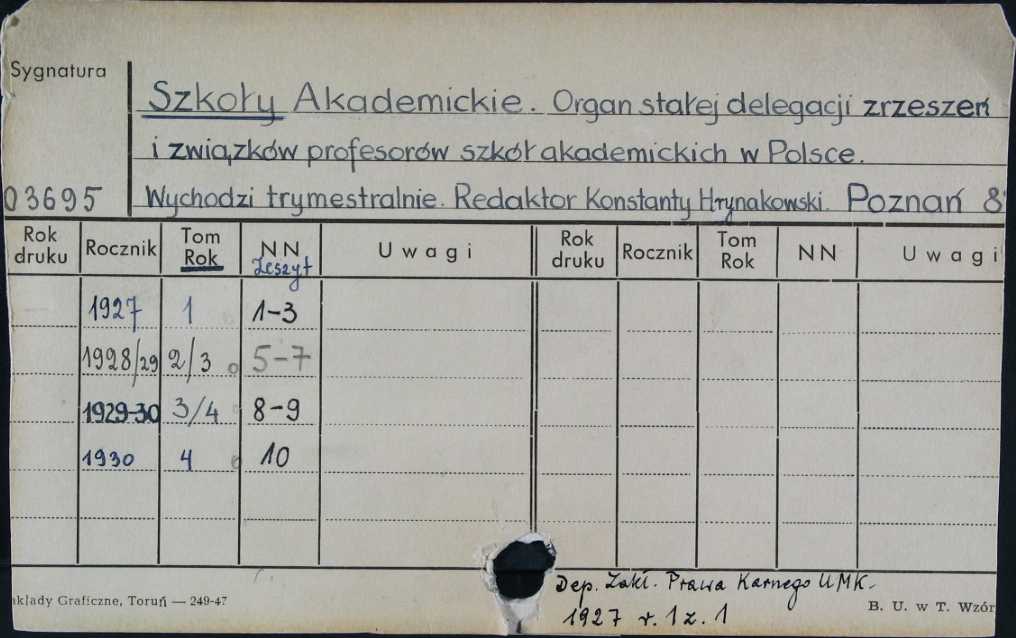 Sygnatura
Szkoły Akademickie. Organ stałej delegacji zrzeszeń
i związków profesorów szkół akademickich w Polsce.
03695 Wychodzi trymestralnie. Redaktor Konstanty Hrynakowski. Poznań 8°
Rok druku Rocznik Tom Rok NN Zeszyt Uwagi Rok druku Rocznik Tom Rok NN Uwagi
1927 1 1-3
1928/29 2/3 5-7
1929-30 3/4 8-9
1930 4 10
Dep. Zakł. Prawa Karnego UMK.
akłady Graficzne, Toruń — 249-47 B. U. w T. Wzór
1927 r. 1 z. 1